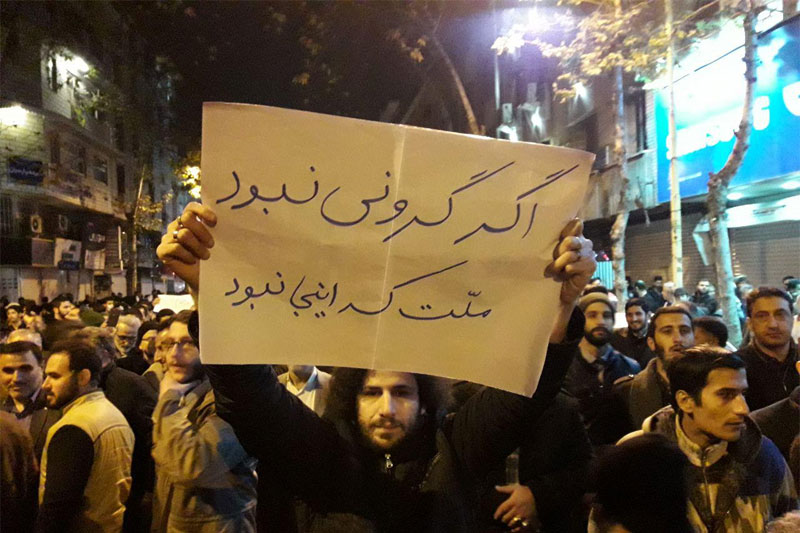 اگر گرونی نبود
ملّت که اینجا نبود
SAMSUNG